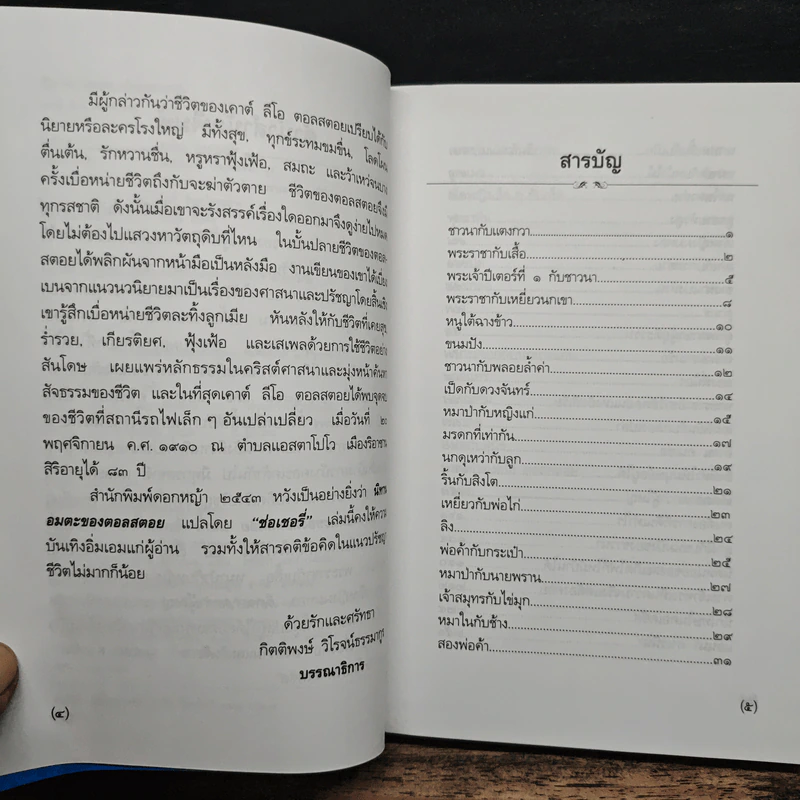 มีผู้กล่าวกันว่าชีวิตของเคาต์ ลีโอ ตอลสตอยเปรียบได้กับ
นิยายหรือละครโรงใหญ่ มีทั้งสุข, ทุกข์ระทมขมขื่น,
ตื่นเต้น, รักหวานชื่น, หรูหราฟุ้งเฟ้อ, สมถะ และว้าเหว่จนบาง
ครั้งเบื่อหน่ายชีวิตถึงกับจะฆ่าตัวตาย ชีวิตของตอลสตอยจึงมี
ทุกรสชาติ ดังนั้นเมื่อเขาจะรังสรรค์เรื่องใดออกมาจึงดูง่ายไปหมด
โดยไม่ต้องไปแสวงหาวัตถุดิบที่ไหน ในบั้นปลายชีวิตของตอล-
สตอยได้พลิกผันจากหน้ามือเป็นหลังมือ งานเขียนของเขาได้เบี่ยง
เบนจากแนวนวนิยายมาเป็นเรื่องของศาสนาและปรัชญาโดยสิ้นเชิง
เขารู้สึกเบื่อหน่ายชีวิตละทิ้งลูกเมีย หันหลังให้กับชีวิตที่เคยสุข
ร่ำรวย, เกียรติยศ, ฟุ้งเฟ้อ และเสเพลด้วยการใช้ชีวิตอย่าง
สันโดษ เผยแพร่หลักธรรมในคริสต์ศาสนาและมุ่งหน้าค้นหา
สัจธรรมของชีวิต และในที่สุดเคาต์ ลีโอ ตอลสตอยได้พบจุดจบ
ของชีวิตที่สถานีรถไฟเล็ก ๆ อันเปล่าเปลี่ยว เมื่อวันที่ ๒๐
พฤศจิกายน ค.ศ. ๑๙๑๐ ณ ตำบลแอสตาโปโว เมืองริอาซาน
สิริอายุได้ ๘๓ ปี
สำนักพิมพ์ดอกหญ้า ๒๕๔๓ หวังเป็นอย่างยิ่งว่า นิทาน
อมตะของตอลสตอย แปลโดย "ช่อเชอรี่" เล่มนี้คงให้ความ
บันเทิงอิ่มเอมแก่ผู้อ่าน รวมทั้งให้สารคติข้อคิดในแนวปรัชญา
ชีวิตไม่มากก็น้อย
ด้วยรักและศรัทธา
กิตติพงษ์ วิโรจน์ธรรมากูร
บรรณาธิการ
(๔)
สารบัญ
ชาวนากับแตงกวา.....๑
พระราชากับเสื้อ.....๒
พระเจ้าปีเตอร์ที่ ๑ กับชาวนา.....๕
พระราชากับเหยี่ยวนกเขา.....๘
หนูใต้ฉางข้าว.....๑๐
ขนมปัง.....๑๑
ชาวนากับพลอยล้ำค่า.....๑๒
เป็ดกับดวงจันทร์.....๑๔
หมาป่ากับหญิงแก่.....๑๕
มรดกที่เท่ากัน.....๑๗
นกดุเหว่ากับลูก.....๑๙
ริ้นกับสิงโต.....๒๑
เหยี่ยวกับพ่อไก่.....๒๓
ลิง.....๒๔
พ่อค้ากับกระเป๋า.....๒๕
หมาป่ากับนายพราน.....๒๗
เจ้าสมุทรกับไข่มุก.....๒๘
หมาในกับช้าง.....๒๙
สองพ่อค้า.....๓๑
(๕)